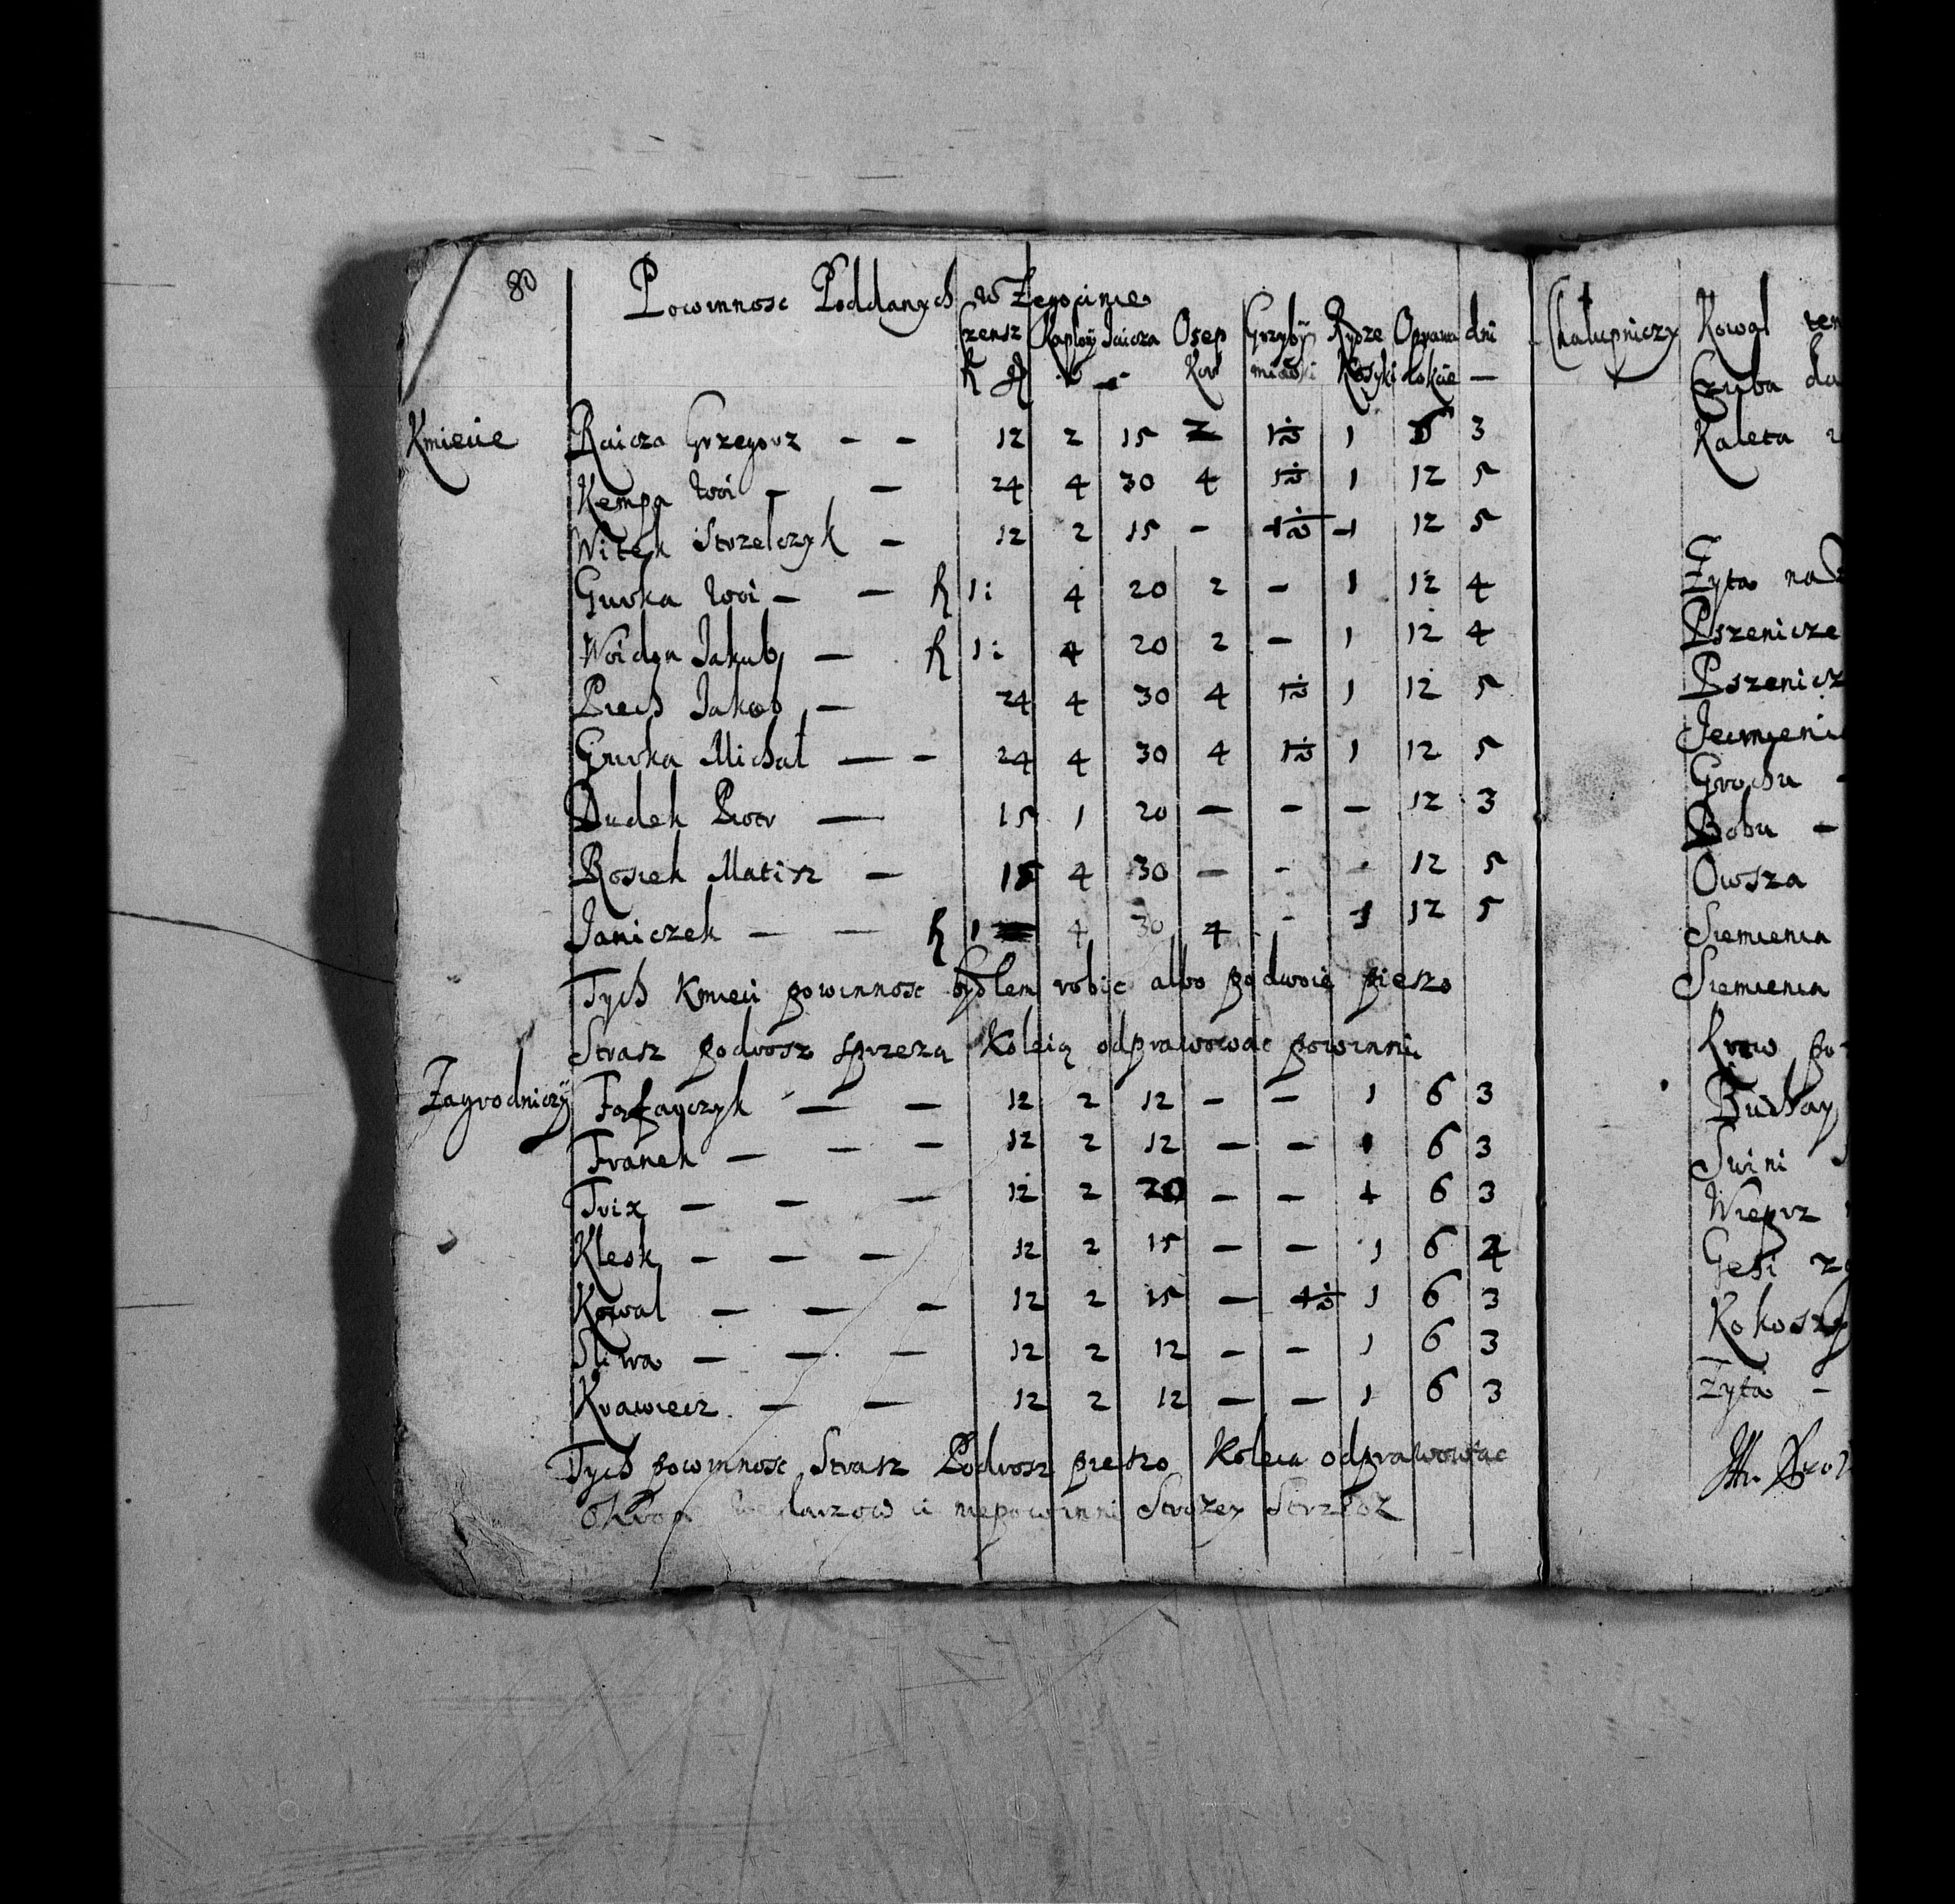 80
Powinnosc Poddanych w Zegocinie
Czensz Kaplony Jaicza Osep Grzyby Rydze Oprawa dni
Kor miarki Kosyki Lokcie —
Kmiecie Raicza Grzegorz — — 12 2 15 2 1½ 1 6 3
Kempa Woi — — 24 4 30 4 1½ 1 12 5
Witek Strzelczyk — 12 2 15 - 1½ 1 12 5
Gurka Woi — — 1: 4 20 2 — 1 12 4
Jakub — 1: 4 20 2 — 1 12 4
Piech Jakob — 24 4 30 4 1½ 1 12 5
Gurka Michał — — 24 4 30 4 1½ 1 12 5
Dudek Piotr — 15 1 20 — — — 12 3
Rosiek Matisz — 15 4 30 — - - 12 5
Janiczek — — 1 4 30 4 - 1 12 5
Tych Kmieci powinnosc bydlem robic albo podwoie pieszo
Strasz podrosz sprzezą Koleią odprawowac powinni
Zagrodniczy — — 12 2 12 — — 1 6 3
Franek — — — 12 2 12 — — 1 6 3
Trix — — — 12 2 20 — — 1 6 3
Klesk — — — 12 2 15 — — 1 6 4
Kowal — — — 12 2 15 — 1½ 1 6 3
Sliwa — — — 12 2 12 — — 1 6 3
Krawiecz — — 12 2 12 — — 1 6 3
Tych powinnosc Strasz Podrosz pieszo Koleia odprawowac
niepowinni Strozey Strzedz
Chalupniczy Kowal
Czuba
Kaleta
Zyta na
Pszenicze
Pszenicz
Jeczmieni
Grochu
Bobu —
Owsza
Siemienia
Siemienia
Krow
Buchay
Swini
Wieprz
Gesi
Kokoszy
Zyta —